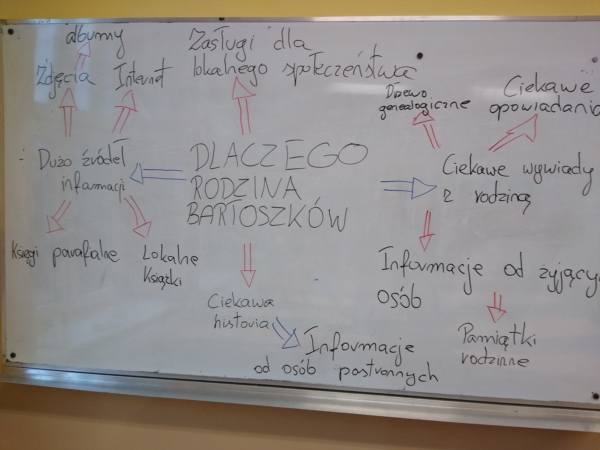 albumy
Zdjęcia
Internet
Zasługi dla
lokalnego społeczeństwa
Drzewo
genealogiczne
Ciekawe
opowiadania
Dużo źródeł
informacji
DLACZEGO
RODZINA
BARTOSZKÓW
Ciekawe wywiady
z rodziną
Księgi parafialne
Lokalne
książki
Ciekawa
historia
Informacje
od osób postronnych
Informacje od żyjący
osób
Pamiątki
rodzinne